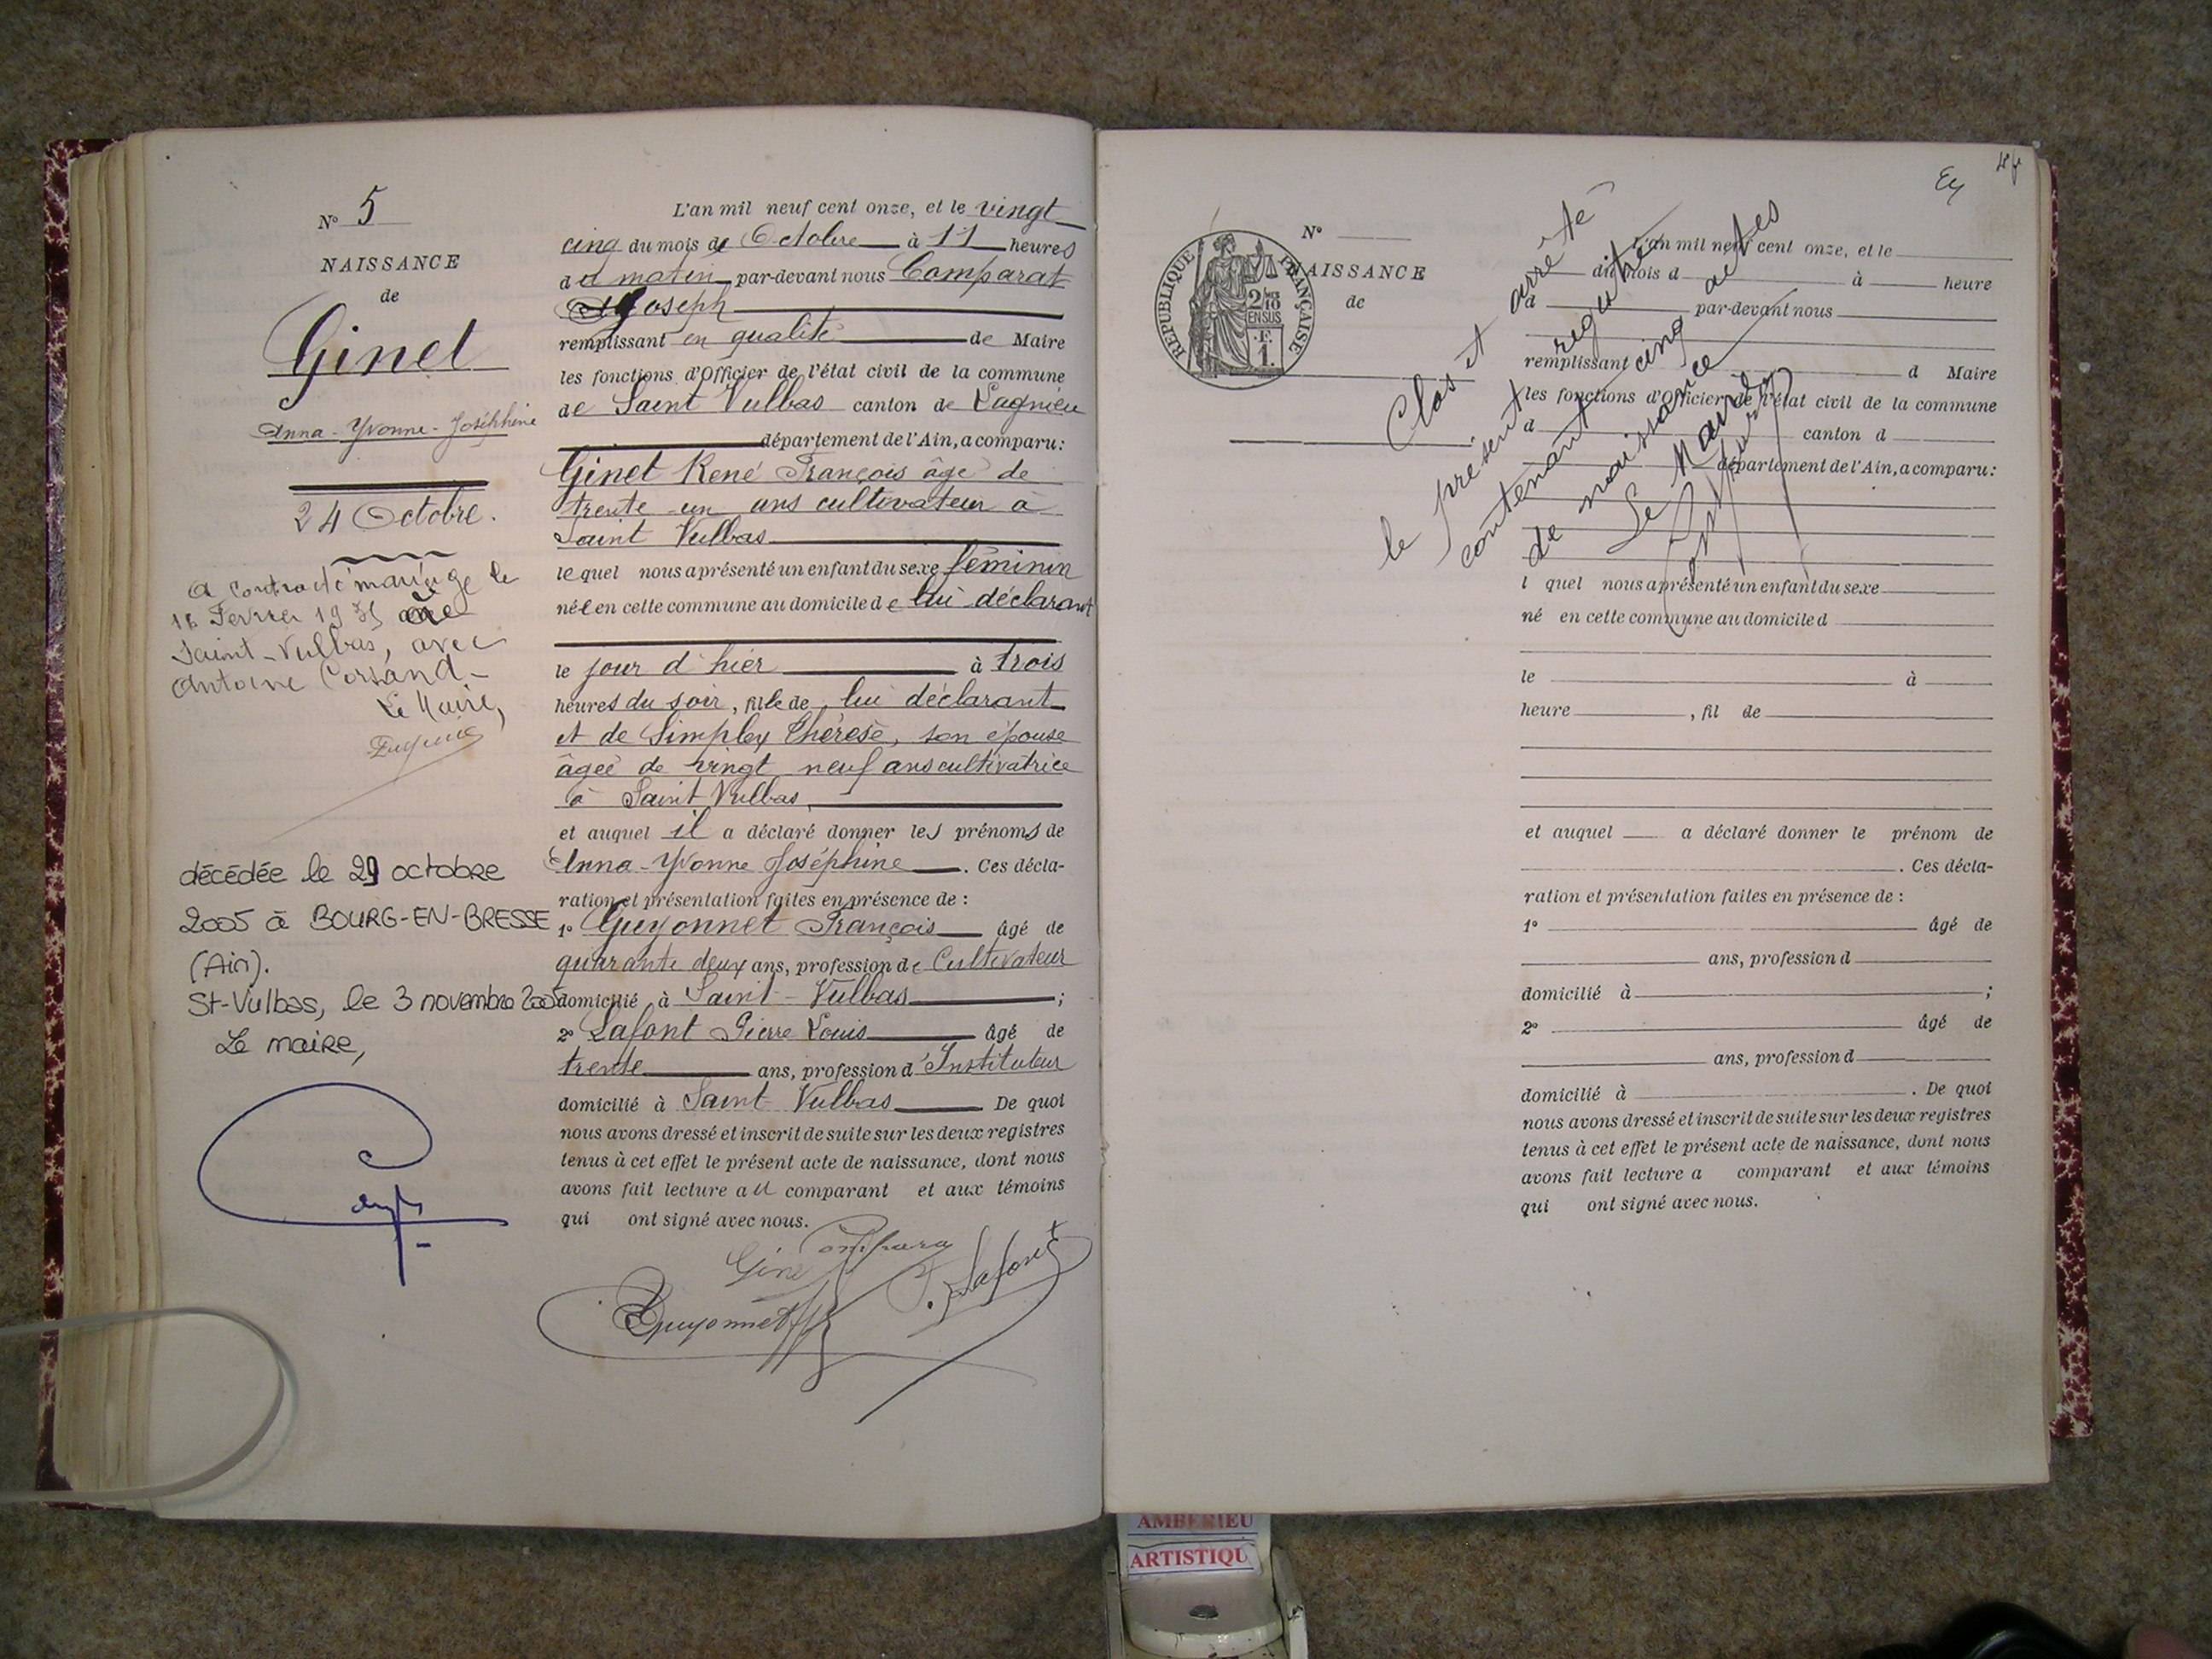 N° 5
NAISSANCE
de
Ginet
Anna-Yvonne-Joséphine
24 Octobre.
a contracté mariage le
Fevrier 19
Saint-Vulbas, avec
Antoine
Le Maire,
décédée le 29 octobre
2005 à BOURG-EN-BRESSE
(Ain).
St-Vulbas, le 3 novembre 2005
Le maire,
L'an mil neuf cent onze, et le vingt
cinq du mois de Octobre à 11 heures
du matin par-devant nous Comparat
Joseph
remplissant en qualité de Maire
les fonctions d'Officier de l'état civil de la commune
de Saint Vulbas canton de Lagnieu
département de l'Ain, a comparu:
Ginet René François âgé de
trente un ans cultivateur à
Saint Vulbas
le quel nous a présenté un enfant du sexe féminin
née en cette commune au domicile de lui déclarant
le jour d'hier à trois
heures du soir, fille de lui déclarant
et de Simplex Thérèse, son épouse
âgée de vingt neuf ans cultivatrice
à Saint Vulbas,
et auquel il a déclaré donner les prénoms de
Anna-Yvonne Joséphine. Ces décla-
ration et présentation faites en présence de :
1° Guyonnet François âgé de
quarante deux ans, profession de Cultivateur
domicilié à Saint-Vulbas ;
2° Lafont Pierre Louis âgé de
trente ans, profession d'Instituteur
domicilié à Saint Vulbas De quoi
nous avons dressé et inscrit de suite sur les deux registres
tenus à cet effet le présent acte de naissance, dont nous
avons fait lecture au comparant et aux témoins
qui ont signé avec nous.
Ginet
Guyonnet
Lafont
N°
NAISSANCE
de
RÉPUBLIQUE FRANÇAISE
2/10
EN SUS
1 F.
Clos et arrêté
le présent registre
contenant cinq actes
de naissance
Le Maire
L'an mil neuf cent onze, et le
du mois d à heure
d par-devant nous
remplissant d Maire
les fonctions d'Officier de l'état civil de la commune
d canton d
département de l'Ain, a comparu:
l quel nous a présenté un enfant du sexe
né en cette commune au domicile d
le à
heure , fil de
et auquel a déclaré donner le prénom de
. Ces décla-
ration et présentation faites en présence de :
1° âgé de
ans, profession d
domicilié à ;
2° âgé de
ans, profession d
domicilié à . De quoi
nous avons dressé et inscrit de suite sur les deux registres
tenus à cet effet le présent acte de naissance, dont nous
avons fait lecture a comparant et aux témoins
qui ont signé avec nous.
AMBERIEU
ARTISTIQU